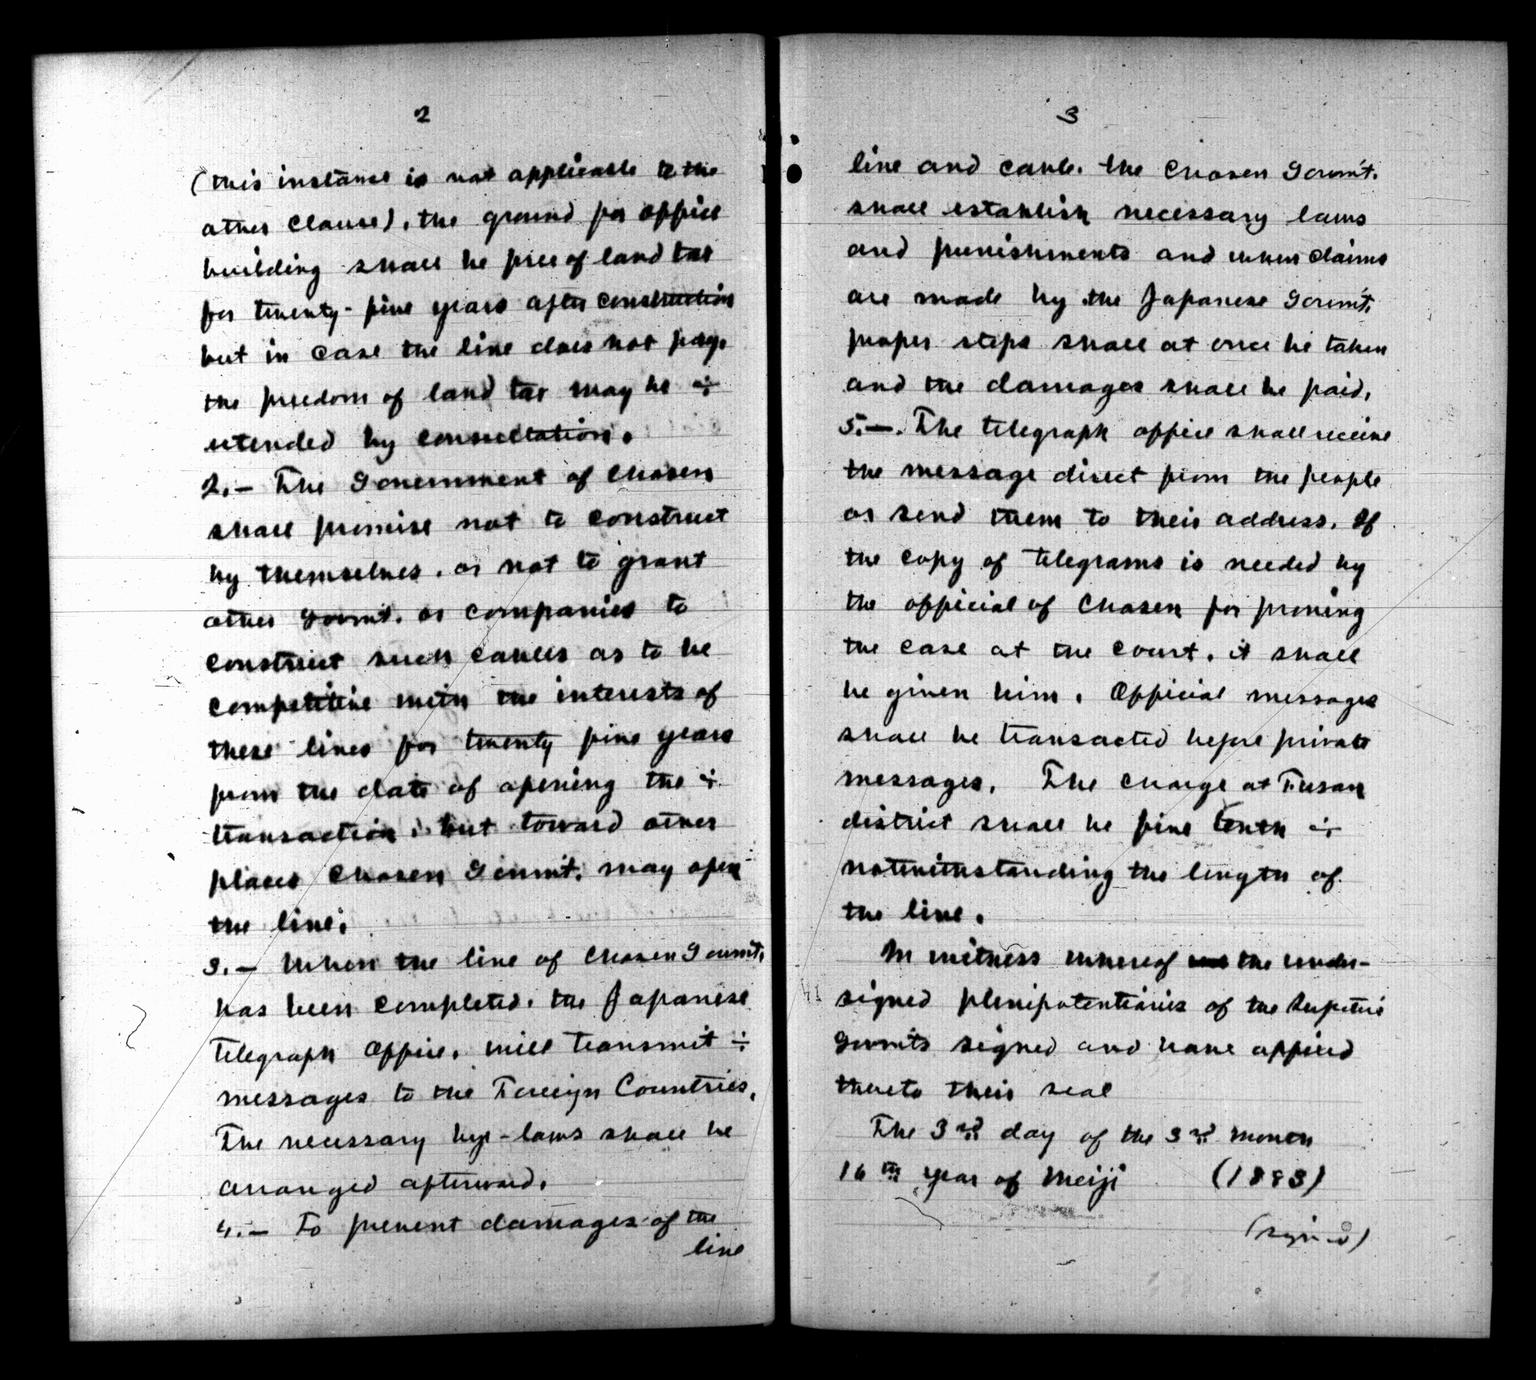 2
(this instance is not applicable to the
other clause), the ground for office
building shall be free of land tax
for twenty-five years after construction
but in case the line does not pay,
the freedom of land tax may be ÷
extended by consultation.
2.— The Government of Chosen
shall promise not to construct
by themselves, or not to grant
other Govmt. or companies to
construct such cables as to be
competitive with the interests of
these lines for twenty five years
from the date of opening the ÷
transaction, but toward other
places Chosen Govmt. may open
the line.
3.— When the line of Chosen Govmt.
has been completed, the Japanese
Telegraph Office, will transmit ÷
messages to the Foreign Countries.
The necessary bye-laws shall be
arranged afterward.
4.— To prevent damages of the
line
3
line and cable, the Chosen Govmt.
shall establish necessary laws
and punishments and when claims
are made by the Japanese Govmt.
proper steps shall at once be taken
and the damages shall be paid.
5.—. The telegraph office shall receive
the message direct from the people
or send them to their address. If
the copy of telegrams is needed by
the official of Chosen for proving
the case at the court, it shall
be given him. Official messages
shall be transacted before private
messages. The charge at Fusan
district shall be five tenth ÷
notwithstanding the length of
the line.
In witness whereof the under-
signed plenipotentiaries of the
Govmts signed and have affixed
thereto their seal
The 3rd day of the 3rd month
16th year of Meiji (1883)
(signed)